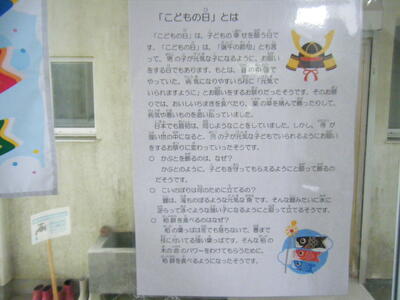 「こどもの日」とは
「こどもの日」は、子どもの幸せを願う日で
す。「こどもの日」は、「端午の節句」とも言っ
て、男の子が元気な子になるように、お願い
をする日でもあります。もとは、
やっていた。病気になりやすい5月に「元気で
いられますように」とお祈りをするお祭りだったそうです。そのお祭
りでは、おいしいちまきを食べたり、薬の草を摘んで飾ったりして、
病気や悪いものを追い払っていました。
日本でも最初は、同じようなことをしていました。しかし、侍が
強い世の中になると、男の子が元気な子どもでいられるようにお願い
をするお祭りに変わっていったそうです。
○ かぶとを飾るのは、なぜ?
かぶとのように、子どもを守ってもらえるようにと願って飾るの
だそうです。
○ こいのぼりは何のために立てるの?
鯉は、滝ものぼるような元気な魚です。そんな鯉みたいに水に
逆らって泳ぐような強い子になるようにと願って立てるそうです。
○ 柏餅を食べるのはなぜ?
柏の葉っぱは冬でも落ちないで、春まで
枝に付いてる強い葉っぱです。そんな柏の
木のパワーをわけてもらうために、
柏餅を食べるようになったそうです。